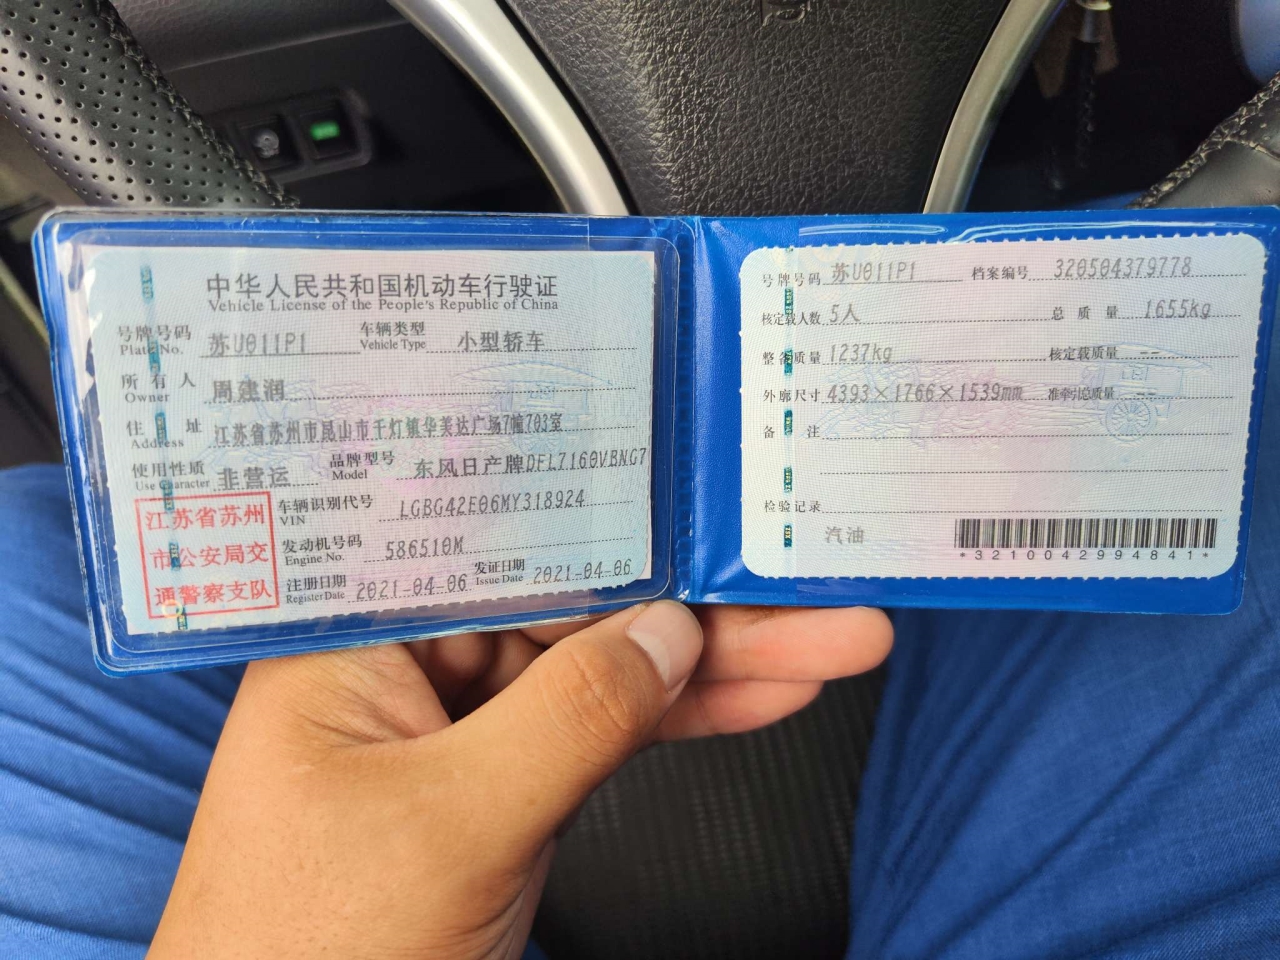 中华人民共和国机动车行驶证
Vehicle License of the People's Republic of China
号牌号码 苏U011P1 车辆类型 小型轿车
Plate No. Vehicle Type
所有人 周建润
Owner
住址 江苏省苏州市昆山市千灯镇华美达广场7幢703室
Address
使用性质 非营运 品牌型号 东风日产牌DFL7160VBNG7
Use Character Model
江苏省苏州
市公安局交
通警察支队
车辆识别代号 LGBG42E06MY318924
VIN
发动机号码 586510M
Engine No.
注册日期 2021-04-06 发证日期 2021-04-06
Register Date Issue Date
号牌号码 苏U011P1 档案编号 320504379778
核定载人数 5人 总质量 1655kg
整备质量 1237kg 核定载质量 --
外廓尺寸 4393×1766×1539mm 准牵引总质量 --
备注
检验记录
汽油
*3210042994841*